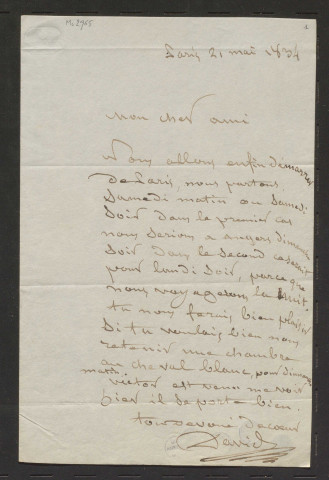 Ms 2965
1
Paris 21 mai 1834
Mon cher ami
Nous allons enfin démarrer
de Paris, nous partons
Samedi matin ou Samedi
Soir dans le premier cas
nous serions a angers dimanche
Soir dans le second ce serait
pour lundi soir, parce que
nous voyagerons la nuit.
tu nous ferais bien plaisir
Si tu voulais bien nous
retenir une chambre
au cheval blanc, pour dimanche
matin.
victor est venu me voir
hier il se porte bien.
tout dévoué de coeur
David